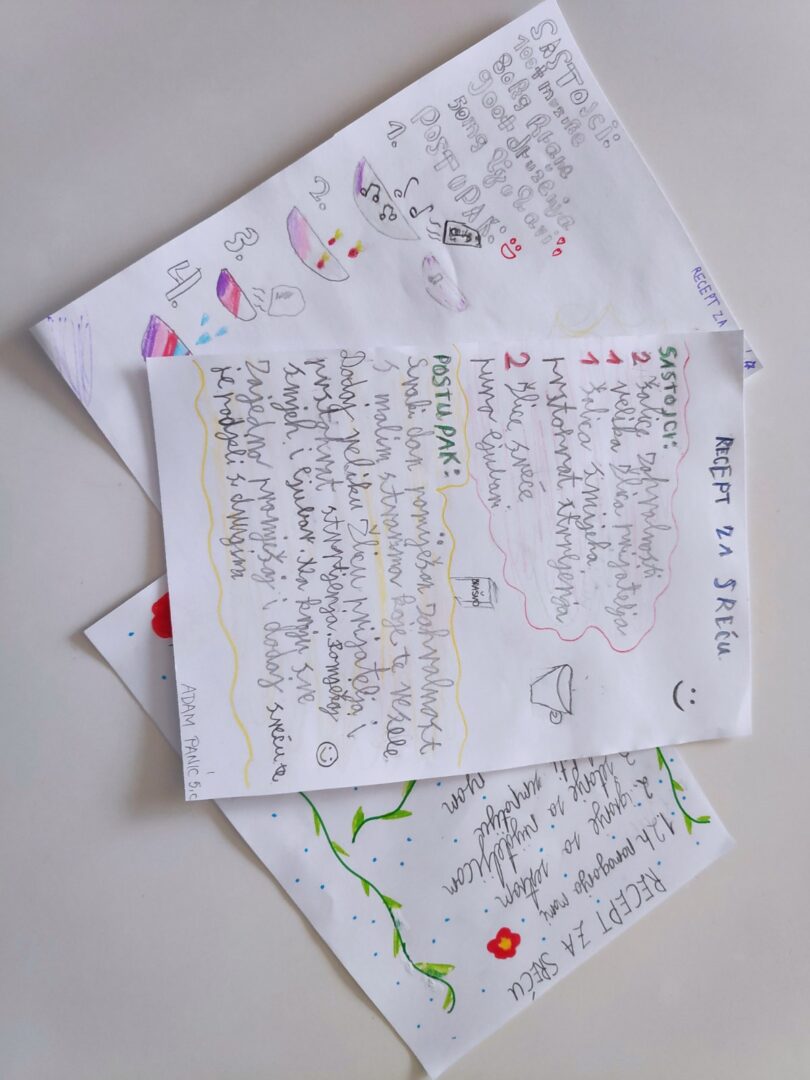 SASTOJCI:
100t muzike
80kg hrane
900t druženja
50mg ljubavi
POSTUPAK:
1.
2.
3.
4.
RECEPT ZA
RECEPT ZA SREĆU
SASTOJCI:
2 šalice zahvalnosti
1 velika žlica prijatelja
1 šalica smijeha
prstohvat strpljenja
2 žlice sreće
puno ljubavi
POSTUPAK:
Svaki dan pomiješaj zahvalnost
s malim stvarima koje te vesele
Dodaj veliku žlicu prijatelja i
prstohvat strpljenja. Pomiješaj
smijeh i ljubav. Na kraju sve
zajedno promiješaj i dodaj sreću te
je podjeli s drugima
ADAM PANIĆ 5.c
RECEPT ZA SREĆU
12h pomaganja mami
2. igranje sa sestrom
sa najboljicom
simpatije